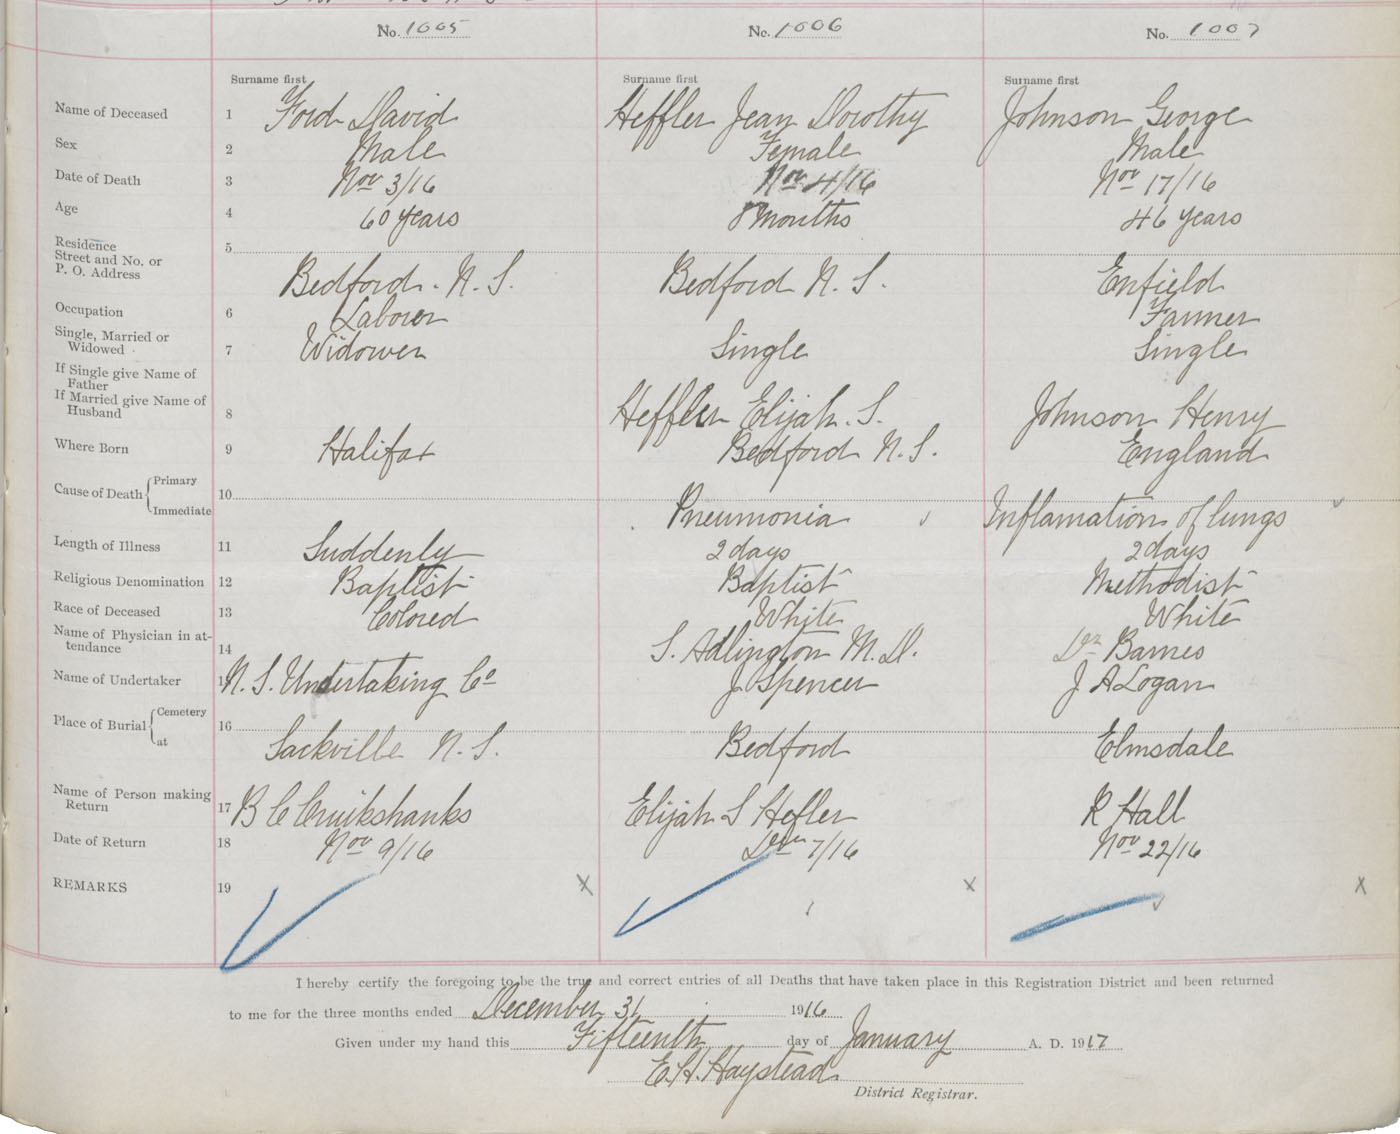 No. 1005 No. 1006 No. 1007
Surname first Surname first Surname first
Name of Deceased 1 Ford David Heffler Jean Dorothy Johnson George
Sex 2 Male Female Male
Date of Death 3 Nov 3/16 Nov 4/16 Nov 17/16
Age 4 60 years 8 months 46 years
Residence 5
Street and No. or
P. O. Address Bedford. N. S. Bedford N. S. Enfield
Occupation 6 Laborer Farmer
Single, Married or
Widowed 7 Widower Single Single
If Single give Name of
Father
If Married give Name of
Husband 8 Heffler Elijah. S. Johnson Henry
Where Born 9 Halifax Bedford N. S. England
Cause of Death Primary 10
Immediate Pneumonia Inflamation of lungs
Length of Illness 11 Suddenly 2 days 2 days
Religious Denomination 12 Baptist Baptist Methodist
Race of Deceased 13 Colored White White
Name of Physician in at-
tendance 14 S. Adlington M. D. Dr Barnes
Name of Undertaker 15 N. S. Undertaking Co J. Spencer J A Logan
Place of Burial Cemetery 16
at Sackville N. S. Bedford Elmsdale
Name of Person making
Return 17 B C Cruikshanks Elijah S Hefler R Hall
Date of Return 18 Nov 9/16 7/16 Nov 22/16
REMARKS 19 X X X
I hereby certify the foregoing to be the true and correct entries of all Deaths that have taken place in this Registration District and been returned
to me for the three months ended December 31 1916
Given under my hand this Fifteenth day of January A. D. 1917
E. H. Haystead
District Registrar.